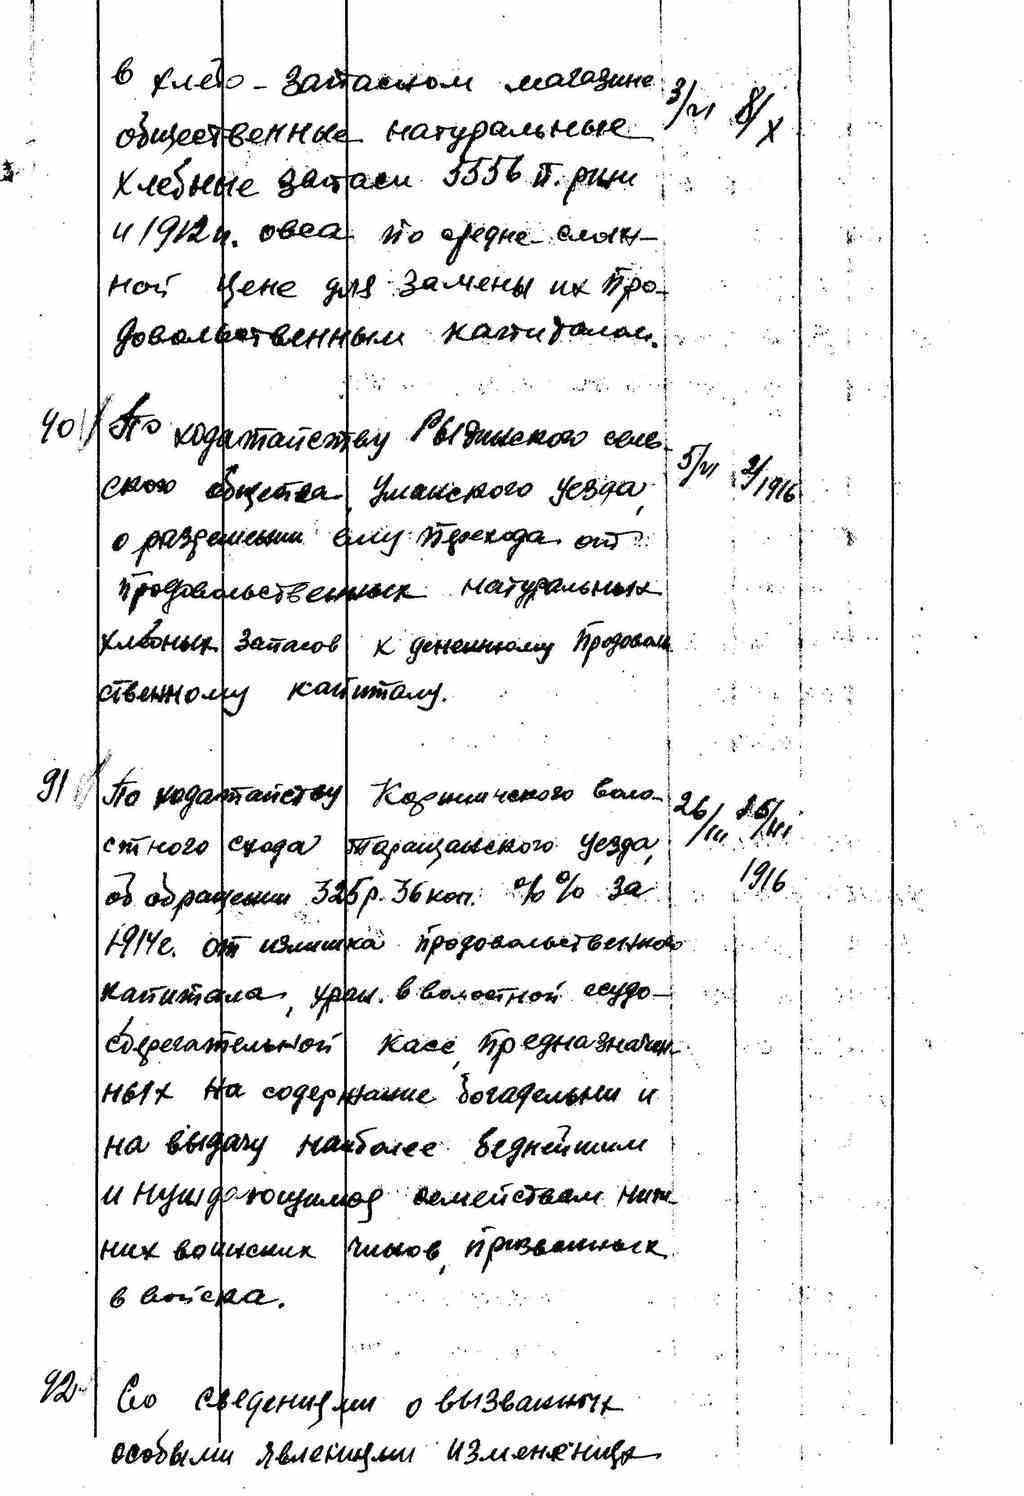 в хлебо-запасном магазине 3/VI 8/X
общественные натуральные
хлебные запасы 5556 п. ржи
и 1912 п. овса по средне-слож-
ной цене для замены их про-
довольственным капиталом.
90 По ходатайству сель- 5/VI 2/1916
ского общества, Уманского уезда,
о разрешении ему перехода от
продовольственных натуральных
хлебных запасов к денежному продоволь
ственному капиталу.
91 По ходатайству воло- 26/III 26/III
стного схода Таращанского уезда,
об обращении 325 р. 36 коп. %% за 1916
1914 г. от излишка продовольственного
капитала, хран. в волостной ссудо-
сберегательной касс, предназначен-
ных на содержание богадельни и
на выдачу наиболее беднейшим
и нуждающимся семействам ниж-
них воинских чинов, призванных
в войска.
92 Со сведениями о вызванных
особыми явлениями